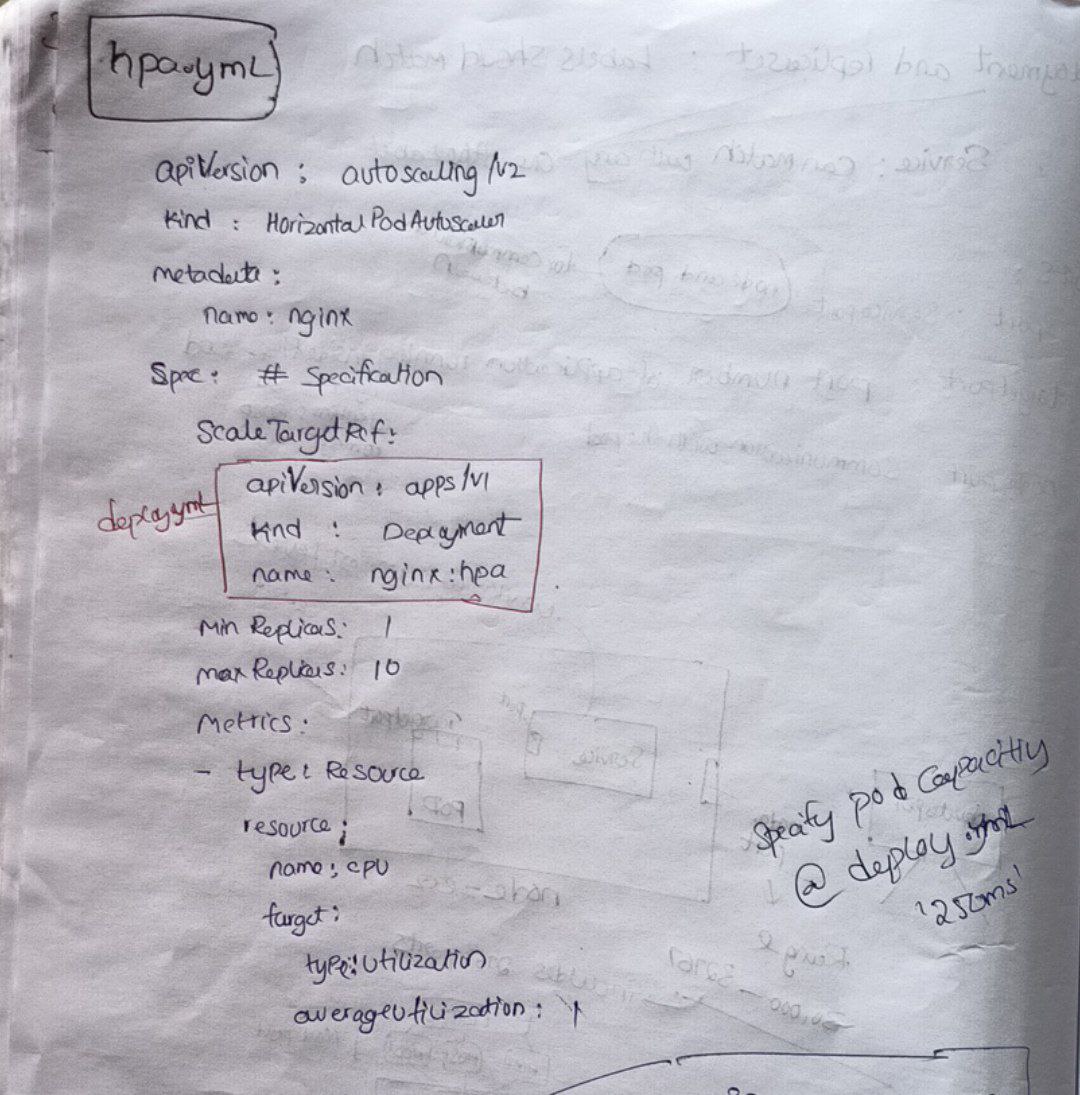 hpa.yml
apiVersion : autoscaling/v2
kind : Horizontal Pod Autoscaler
metadata :
name : nginx
Spec : # Specification
Scale Target Ref :
deploy.yml
apiVersion : apps/v1
kind : Deployment
name : nginx:hpa
Min Replicas : 1
max Replicas : 10
Metrics :
- type : Resource
resource :
name : cpu
target :
type : Utilization
averageUtilization : 1
Specify pod Capacity
@ deploy.yml
'250ms'